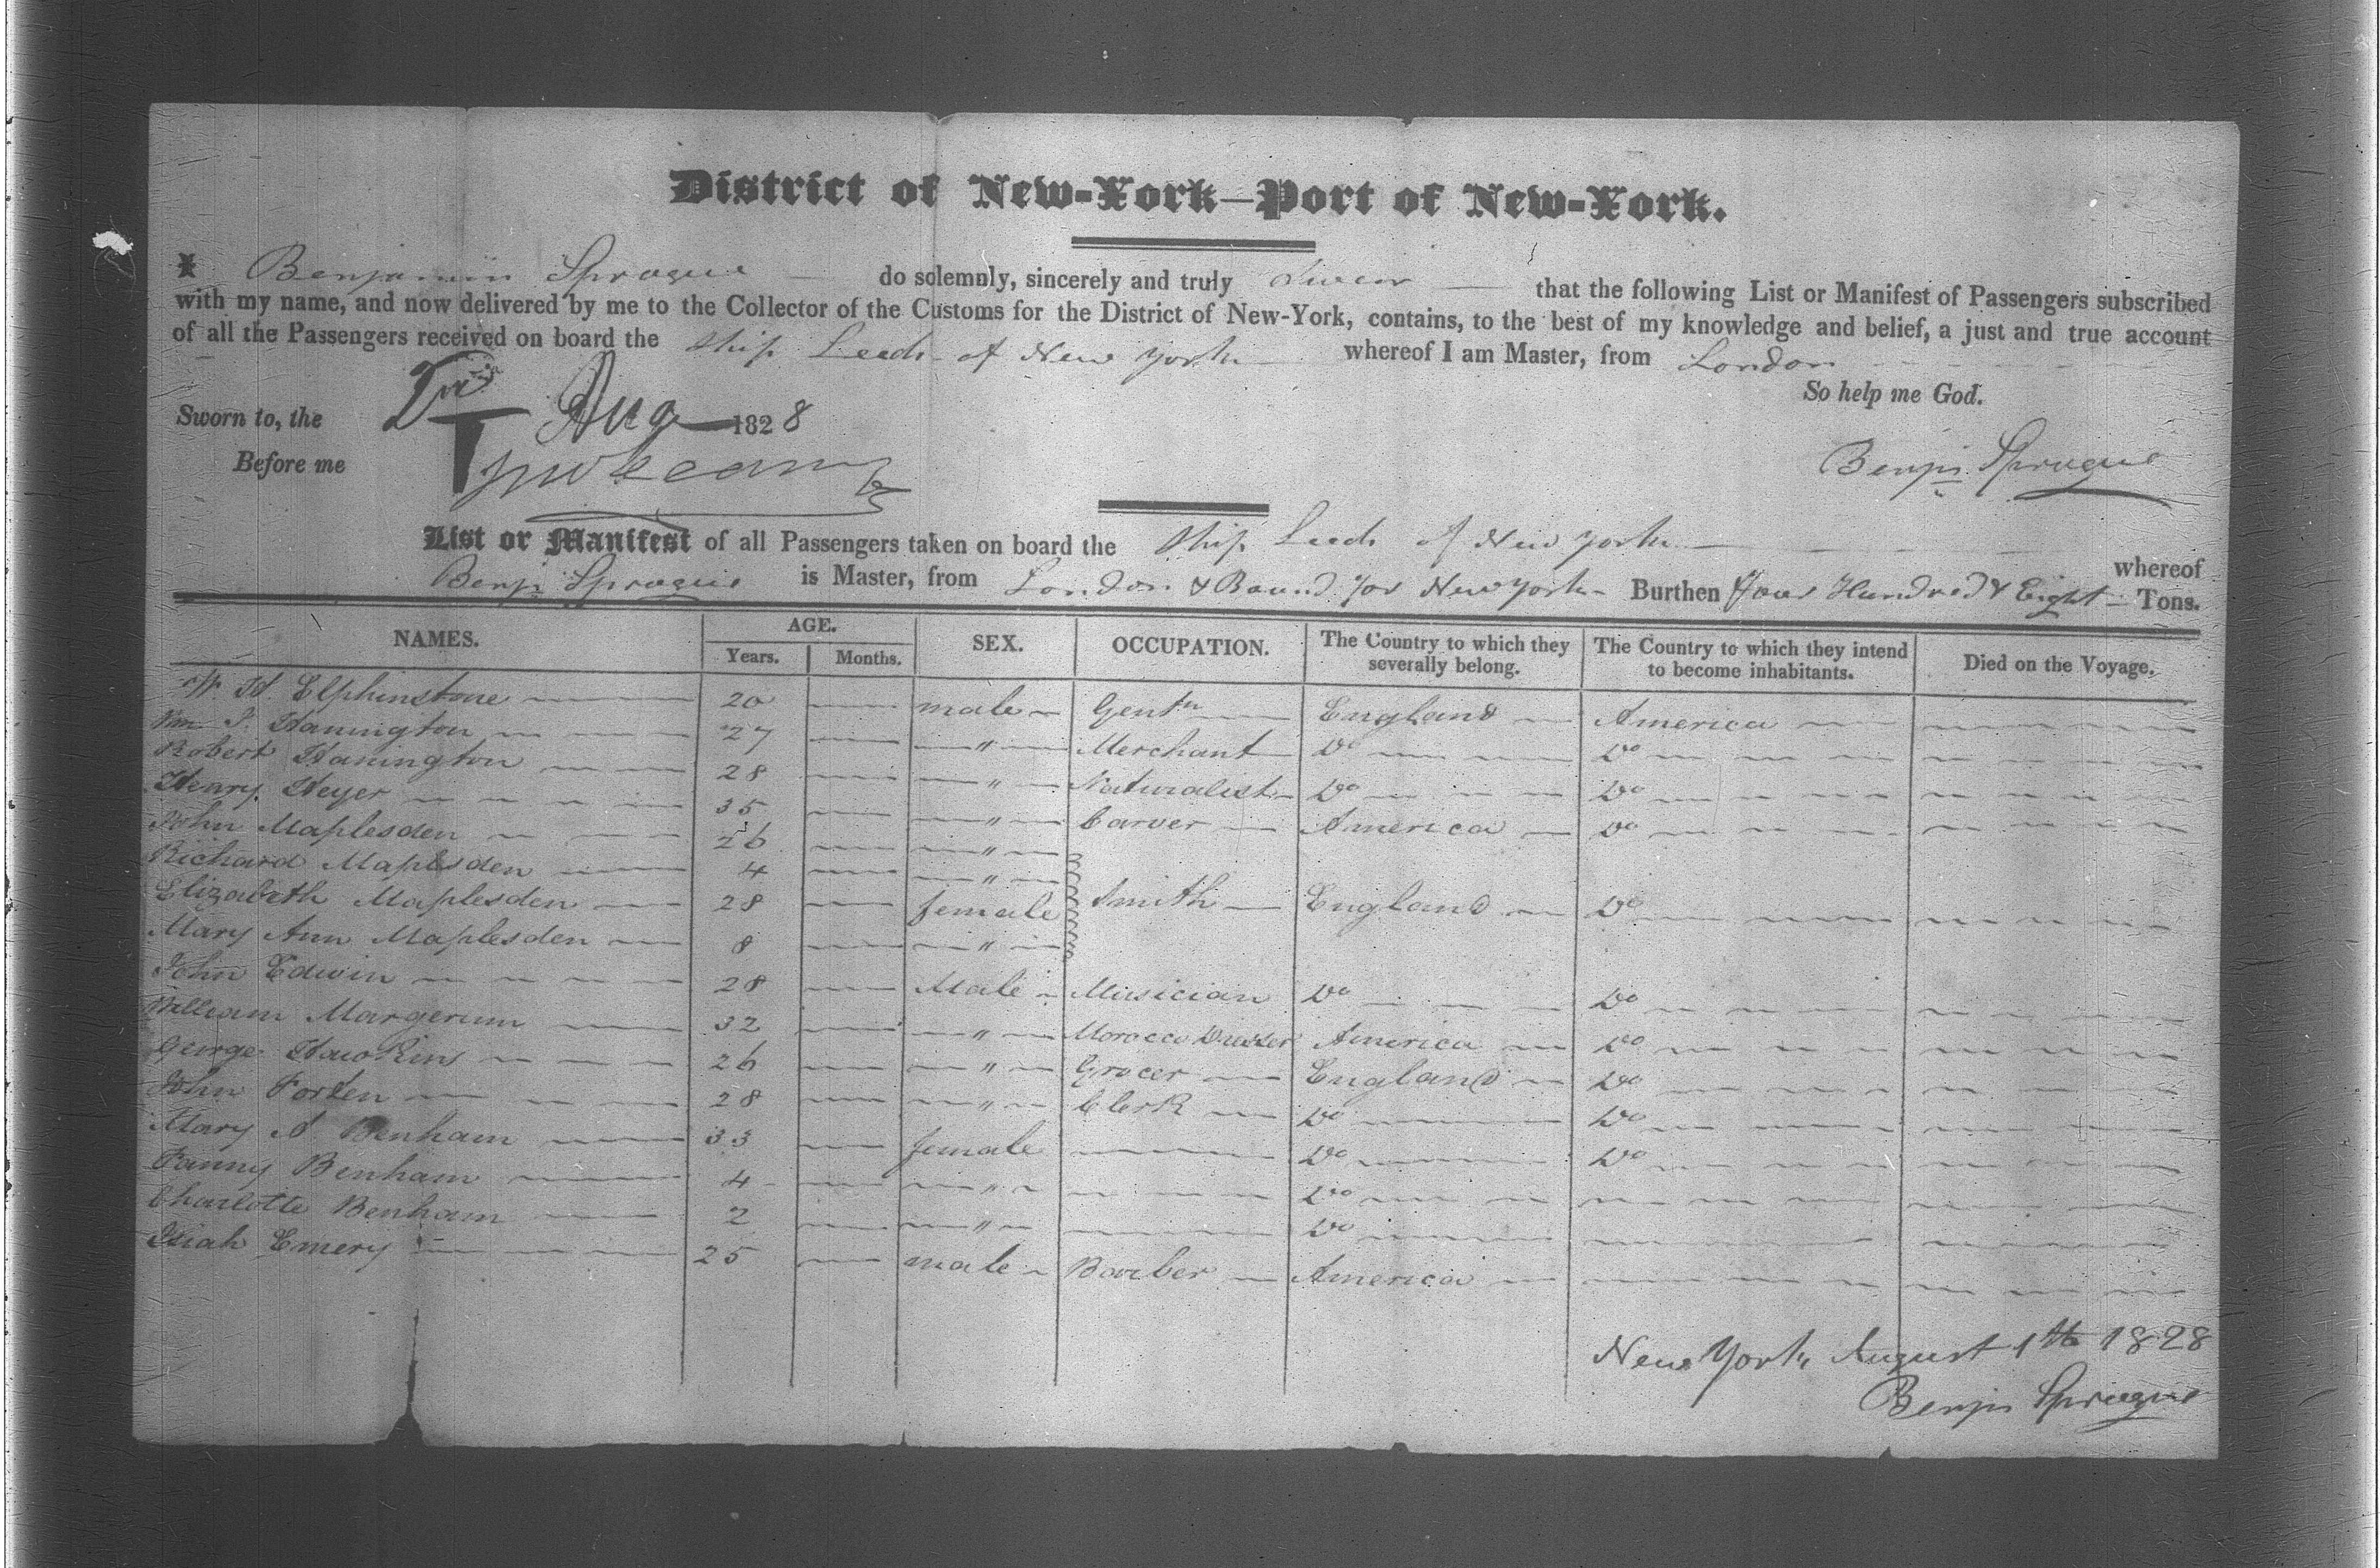 District of New-York—Port of New-York.
I Benjamin Sprague — do solemnly, sincerely and truly Swear — that the following List or Manifest of Passengers subscribed
with my name, and now delivered by me to the Collector of the Customs for the District of New-York, contains, to the best of my knowledge and belief, a just and true account
of all the Passengers received on board the Ship Leeds of New York whereof I am Master, from London
So help me God.
Sworn to, the Aug 1828
Before me
Benjn Sprague
List or Manifest of all Passengers taken on board the Ship Leeds of New York — whereof
Benjn Sprague is Master, from London & Bound for New York Burthen Four Hundred & Eight Tons.
NAMES. AGE. Years. Months. SEX. OCCUPATION. The Country to which they severally belong. The Country to which they intend to become inhabitants. Died on the Voyage.
H. Elphinstone 20 male Gentn England America
Wm Hanington 27 " Merchant Do Do
Robert Hanington 28 " Naturalist Do Do
Henry Heyer 35 " Carver America Do
John Maplesden 26 "
Richard Maplesden 4 "
Elizabeth Maplesden 28 female Smith England Do
Mary Ann Maplesden 8 "
John Edwin 28 Male Musician Do Do
William Margerum 32 " Morocco Dresser America Do
George Hawkins 26 " Grocer England Do
John 28 " Clerk Do Do
Mary A Benham 33 female Do Do
Fanny Benham 4 " Do
Charlotte Benham 2 " Do
Isiah Emery 25 male Barber America
New York August 1th 1828
Benjn Sprague